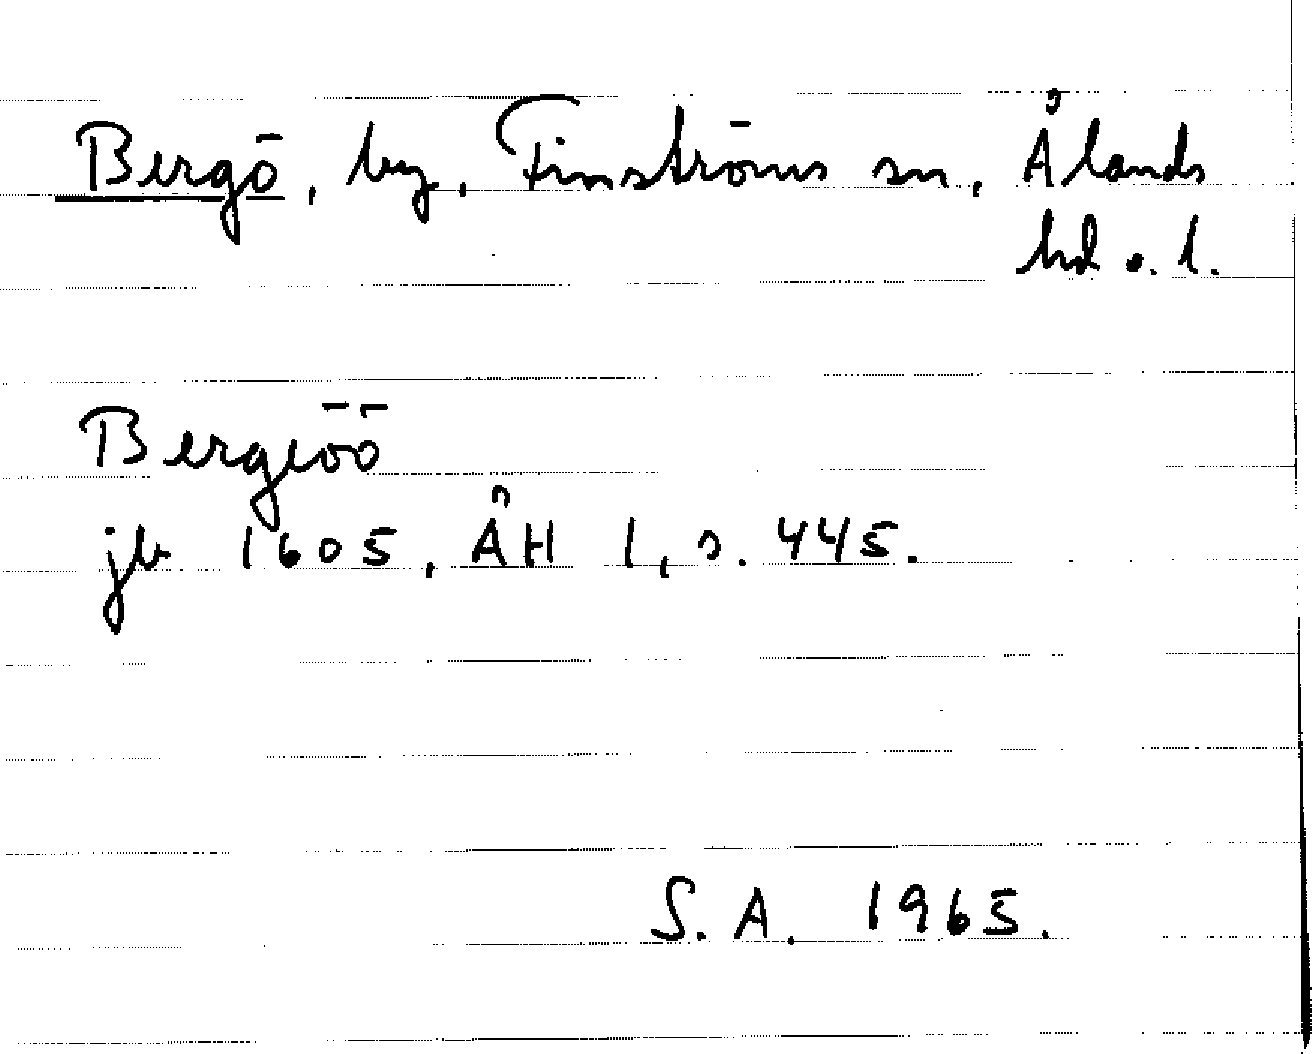 Bergö, by, Finströms sn, Ålands
hd o. l.
Bergiöö
jb 1605, ÅH I, s. 445.
S. A. 1965.